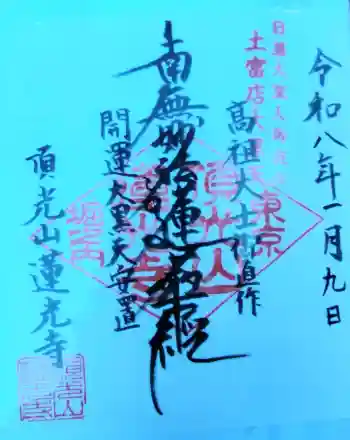 令和八年一月九日
土富店大黒天
高祖大士御直作
東京
南無妙法蓮華経
開運大黒天安置
堀之内
頂光山蓮光寺